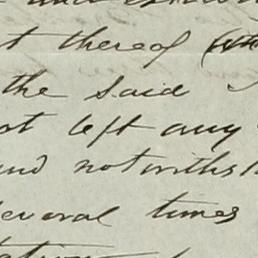 t thereof (th
the said
ot left any
and notwiths
several times